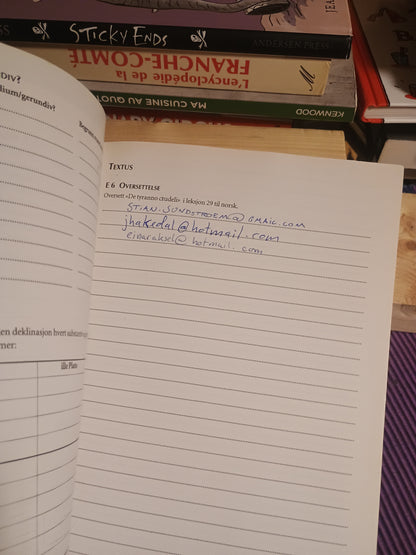 STICKY ENDS
ANDERSEN PRESS
L'encyclopédie de la
FRANCHE-COMTÉ
MA CUISINE AU QUO
KENWOOD
DIV?
dium/gerundiv?
TEXTUS
E 6 OVERSETTELSE
Oversett «De tyranno crudeli» i leksjon 29 til norsk.
STIAN.SUNDSTROEM@GMAIL.COM
jhakedal@hotmail.com
einaraksel@hotmail.com
en deklinasjon hvert substant
mer:
ille Plato